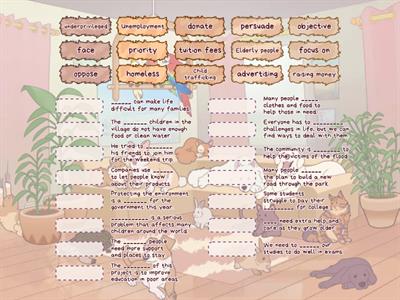 underprivileged
Unemployment
donate
persuade
objective
face
priority
tuition fees
Elderly people
focus on
oppose
homeless
Child
trafficking
advertising
raising money
______ can make life
difficult for many families
The ______ children in the
village do not have enough
food or clean water
He tried to ______
his friends to join him
for the weekend trip
Companies use ______
to let people know
about their products
Protecting the environment
is a ______ for the
government this year
________ is a serious
problem that affects many
children around the world
The ______ people
need more support
and places to stay
The ______ of the
project is to improve
education in poor areas
Many people ______
clothes and food to
help those in need
Everyone has to ______
challenges in life, but we can
find ways to deal with them
The community is ______ to
help the victims of the flood
Many people ______
the plan to build a new
road through the park
Some students
struggle to pay their
________ for college
____ need extra help and
care as they grow older
We need to ______ our
studies to do well in exams